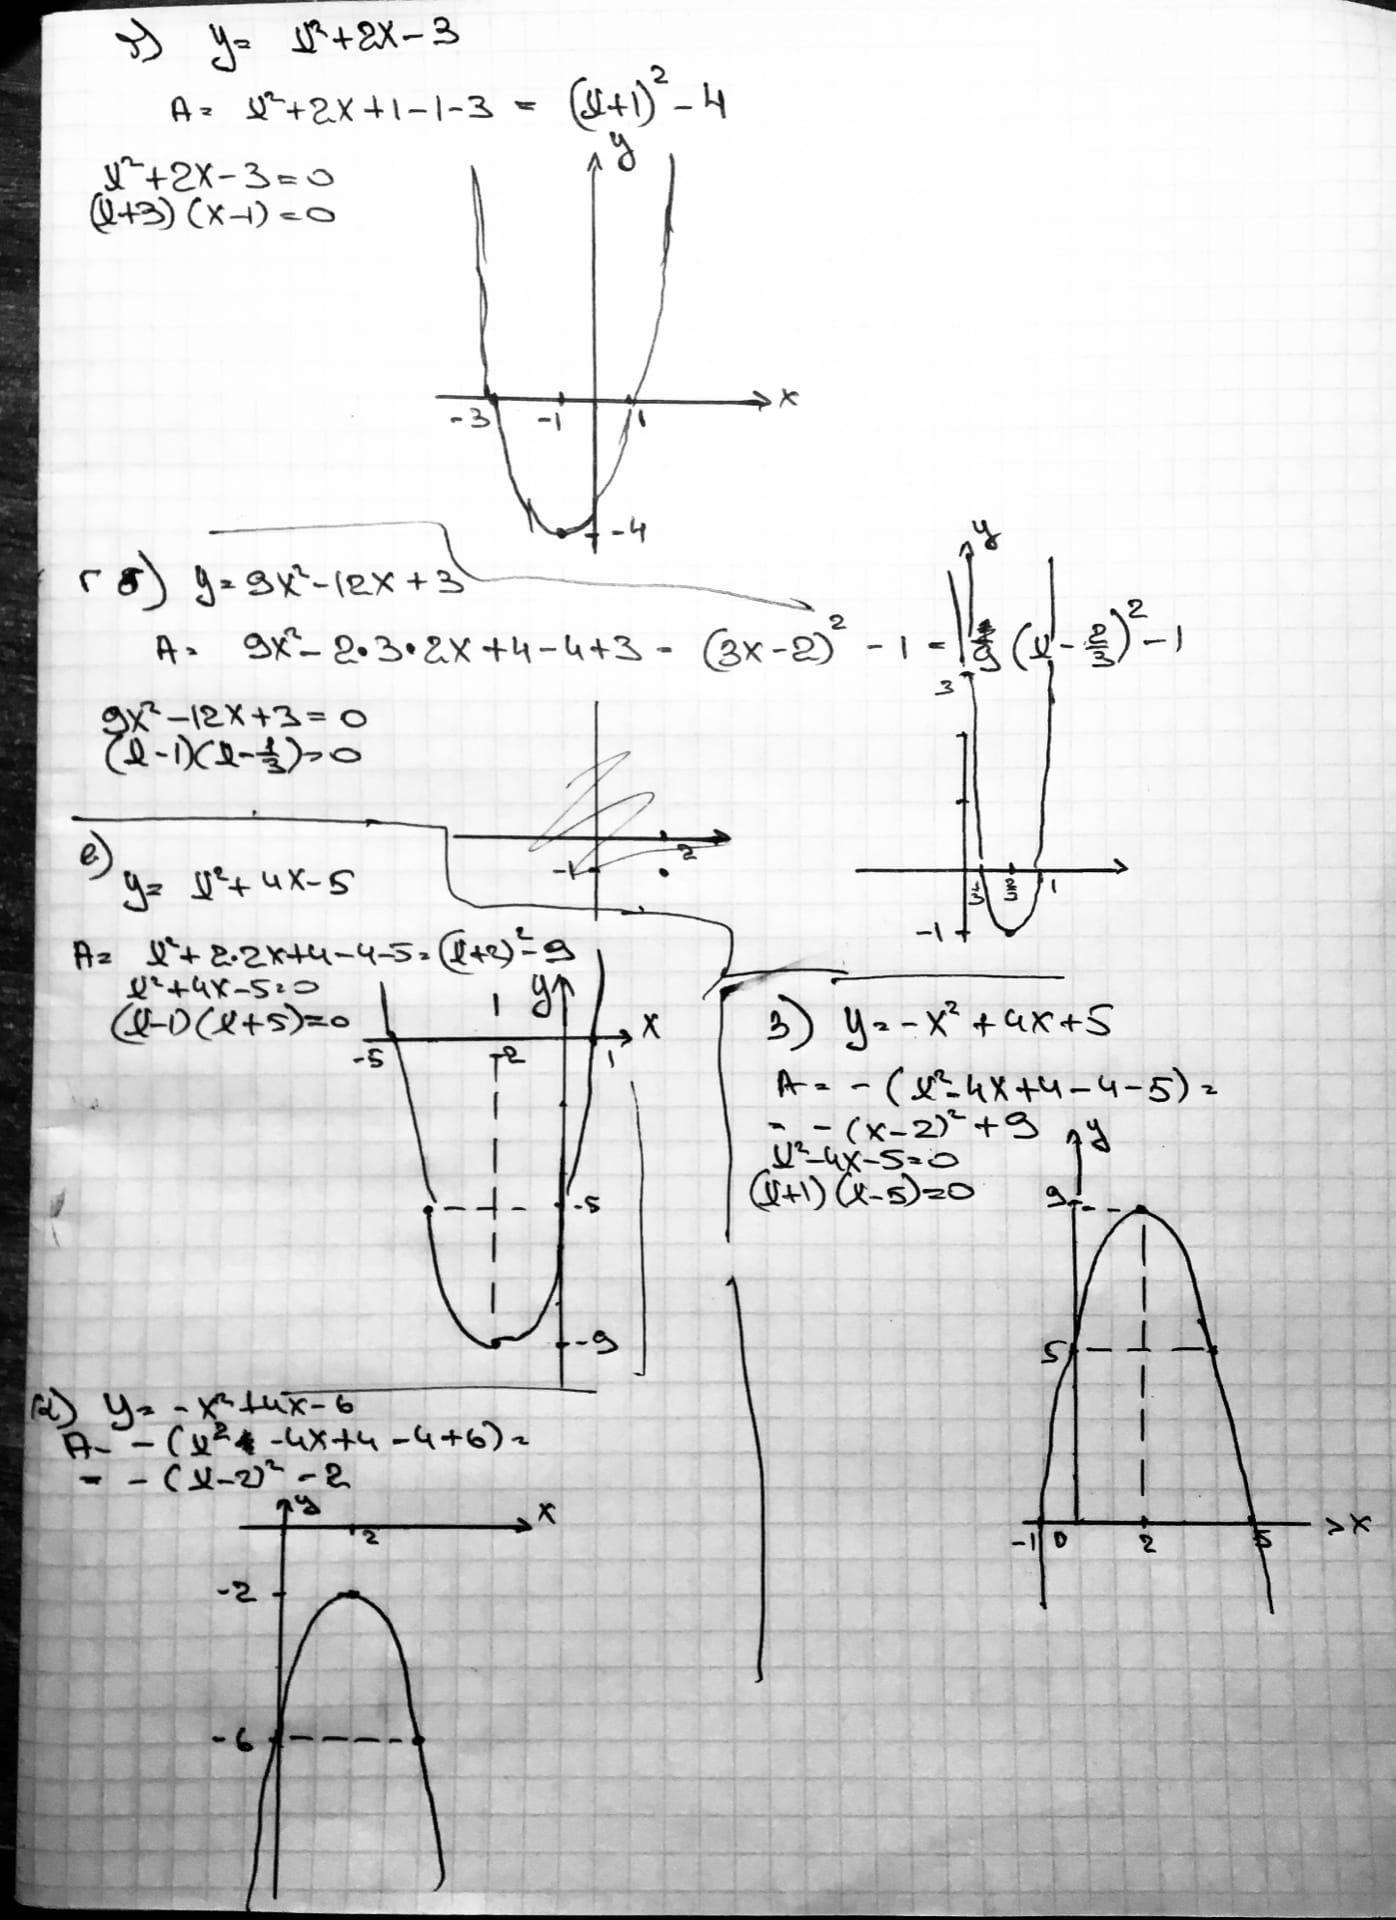 y = x² + 2x - 3
A = x² + 2x + 1 - 1 - 3 = (x+1)² - 4
x² + 2x - 3 = 0
(x+3)(x-1) = 0
y
x
-3 -1 1
-4
г б) y = 9x² - 12x + 3
A = 9x² - 2·3·2x + 4 - 4 + 3 = (3x-2)² - 1 = 9(x - 2/3)² - 1
9x² - 12x + 3 = 0
(x-1)(x - 1/3) = 0
2
-1
y
3
1/3 2/3 1
-1
е) y = x² + 4x - 5
A = x² + 2·2x + 4 - 4 - 5 = (x+2)² - 9
x² + 4x - 5 = 0
(x-1)(x+5) = 0
y
x
-5 -2 1
-5
-9
з) y = -x² + 4x + 5
A = -(x² - 4x + 4 - 4 - 5) =
= -(x-2)² + 9
x² - 4x - 5 = 0
(x+1)(x-5) = 0
y
9
5
-1 0 2 5
x
y = -x² + 4x - 6
A = -(x² - 4x + 4 - 4 + 6) =
= -(x-2)² - 2
y
x
2
-2
-6